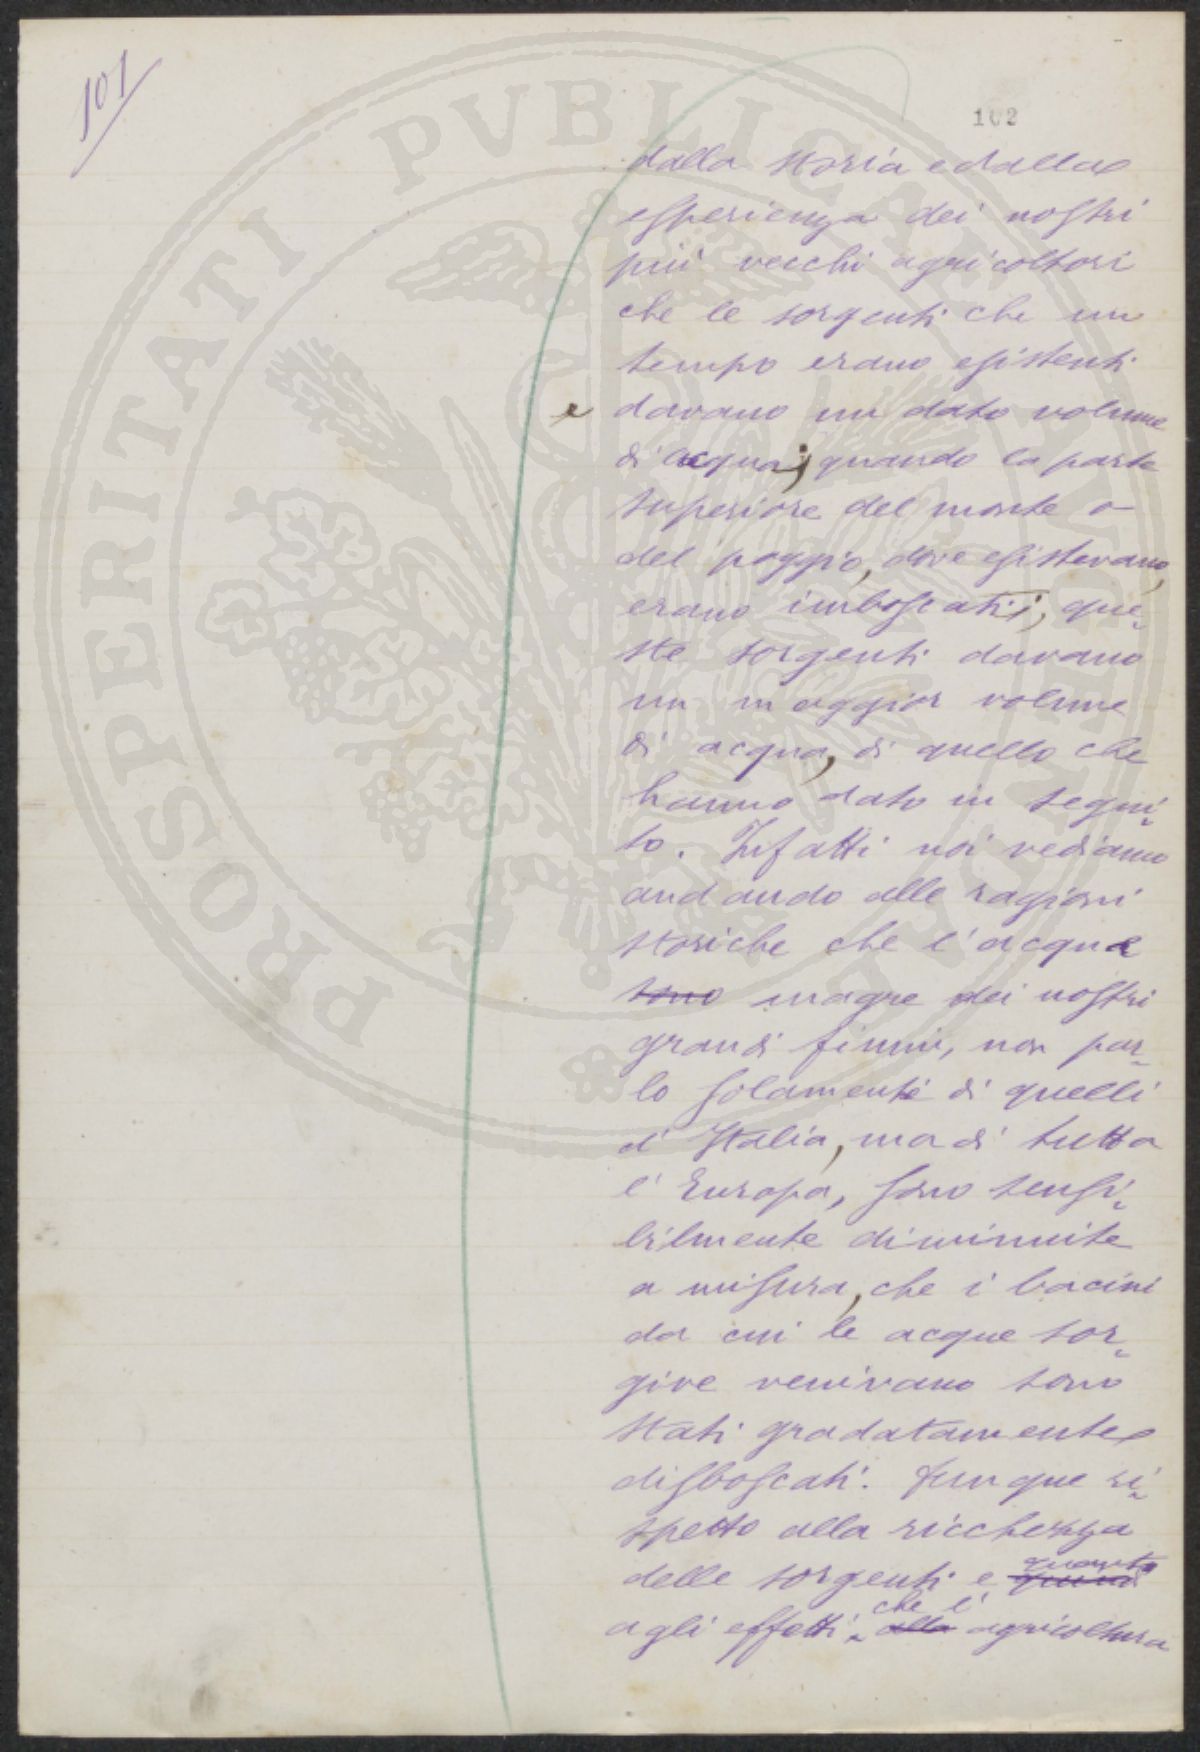 101
102
dalla storia e dalla
esperienza dei nostri
più vecchi agricoltori
che le sorgenti che un
tempo erano esistenti
e davano un dato volume
di acqua; quando la parte
superiore del monte o
del poggio, dove esistevano,
erano imboscati; que-
ste sorgenti davano
un maggior volume
di acqua, di quello che
hanno dato in segui-
to. Infatti noi vediamo
andando alle ragioni
storiche che l'acque
sono magre dei nostri
grandi fiumi, non par-
lo solamente di quelli
d'Italia, ma di tutta
l'Europa, sono sensi-
bilmente diminuite
a misura, che i bacini
da cui le acque sor-
give venivano sono
stati gradatamente
disboscati. Dunque ri-
spetto alla ricchezza
delle sorgenti e quanto
agli effetti che l'
alla agricoltura
PROSPERITATI PVBLICAE AVGENDAE